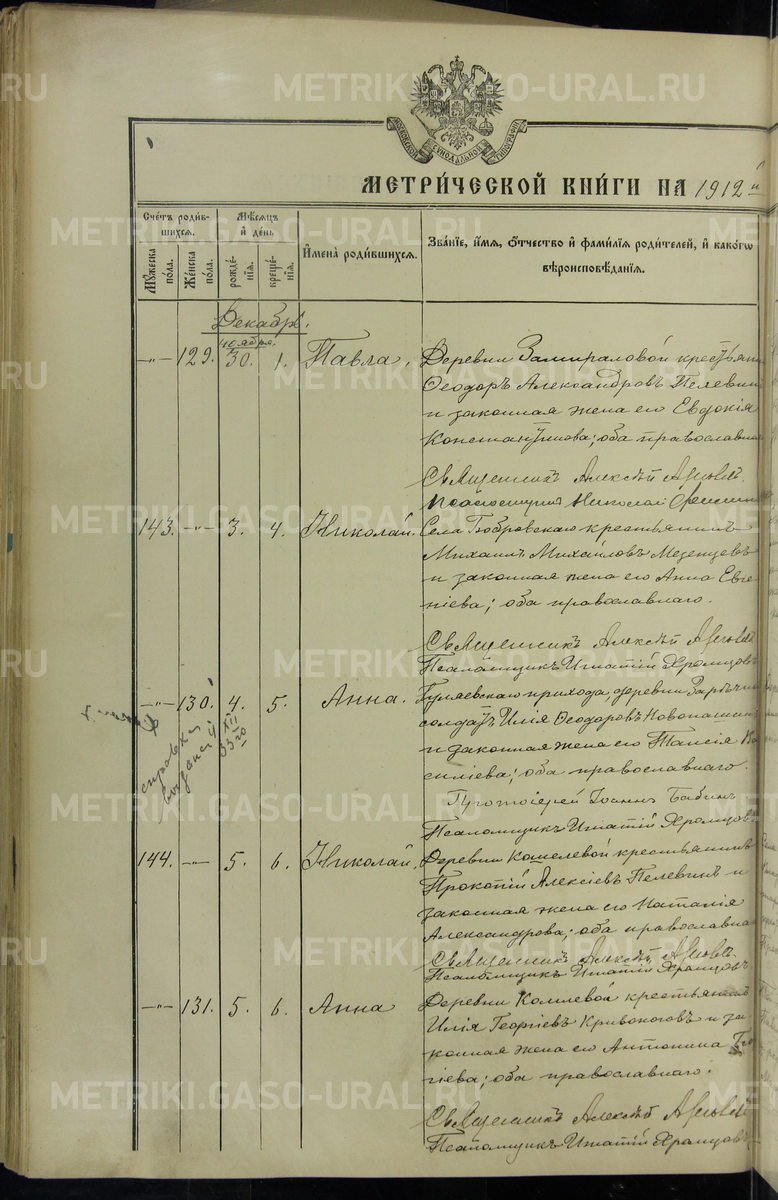 МОСКОВСКОЙ СѴНОДАЛЬНОЙ ТИПОГРАФІИ
МЕТРИЧЕСКОЙ КНИГИ НА 1912 й
Счетъ родив-
шихся.
Мужеска пола.
Женска пола.
Мѣсяцъ
и день
рожде-
нія.
креще-
нія.
Имена родившихся.
Званіе, имя, отчество и фамилія родителей, и какогω
вѣроисповѣданія.
Декабрь.
ноября.
—"— 129. 30. 1. Павла. Деревни Замираловой крестьянинъ
Ѳеодоръ Александровъ Пелевинъ
и законная жена его Евдокія
Константинова; оба православнаго
Священникъ Алексѣй
Псаломщикъ Николай
143. —"— 3. 4. Николай. Села Бобровскаго крестьянинъ
Михаилъ Михайловъ Мезенцевъ
и законная жена его Анна Евге
ніева; оба православнаго.
Священникъ Алексѣй
Псаломщикъ Игнатій Храмцовъ
—"— 130. 4. 5. Анна. Гуляевскаго прихода деревни
солдатъ Илія Ѳеодоровъ Новопашинъ
и законная жена его Таисія Ва
силіева; оба православнаго.
справка
выдана 4/XII
33го
Протоіерей Іоаннъ Бабинъ
Псаломщикъ Игнатій Храмцовъ
144. —"— 5. 6. Николай. Деревни Кошелевой крестьянинъ
Прокопій Алексіевъ Пелевинъ и
законная жена его Наталія
Александрова; оба православнаго
Священникъ Алексѣй
Псаломщикъ Игнатій Храмцовъ
—"— 131. 5. 6. Анна Деревни крестьянинъ
Илія Георгіевъ Кривоноговъ и за
конная жена его Антонина
гіева; оба православнаго.
Священникъ Алексѣй
Псаломщикъ Игнатій Храмцовъ
METRIKI.GASO-URAL.RU